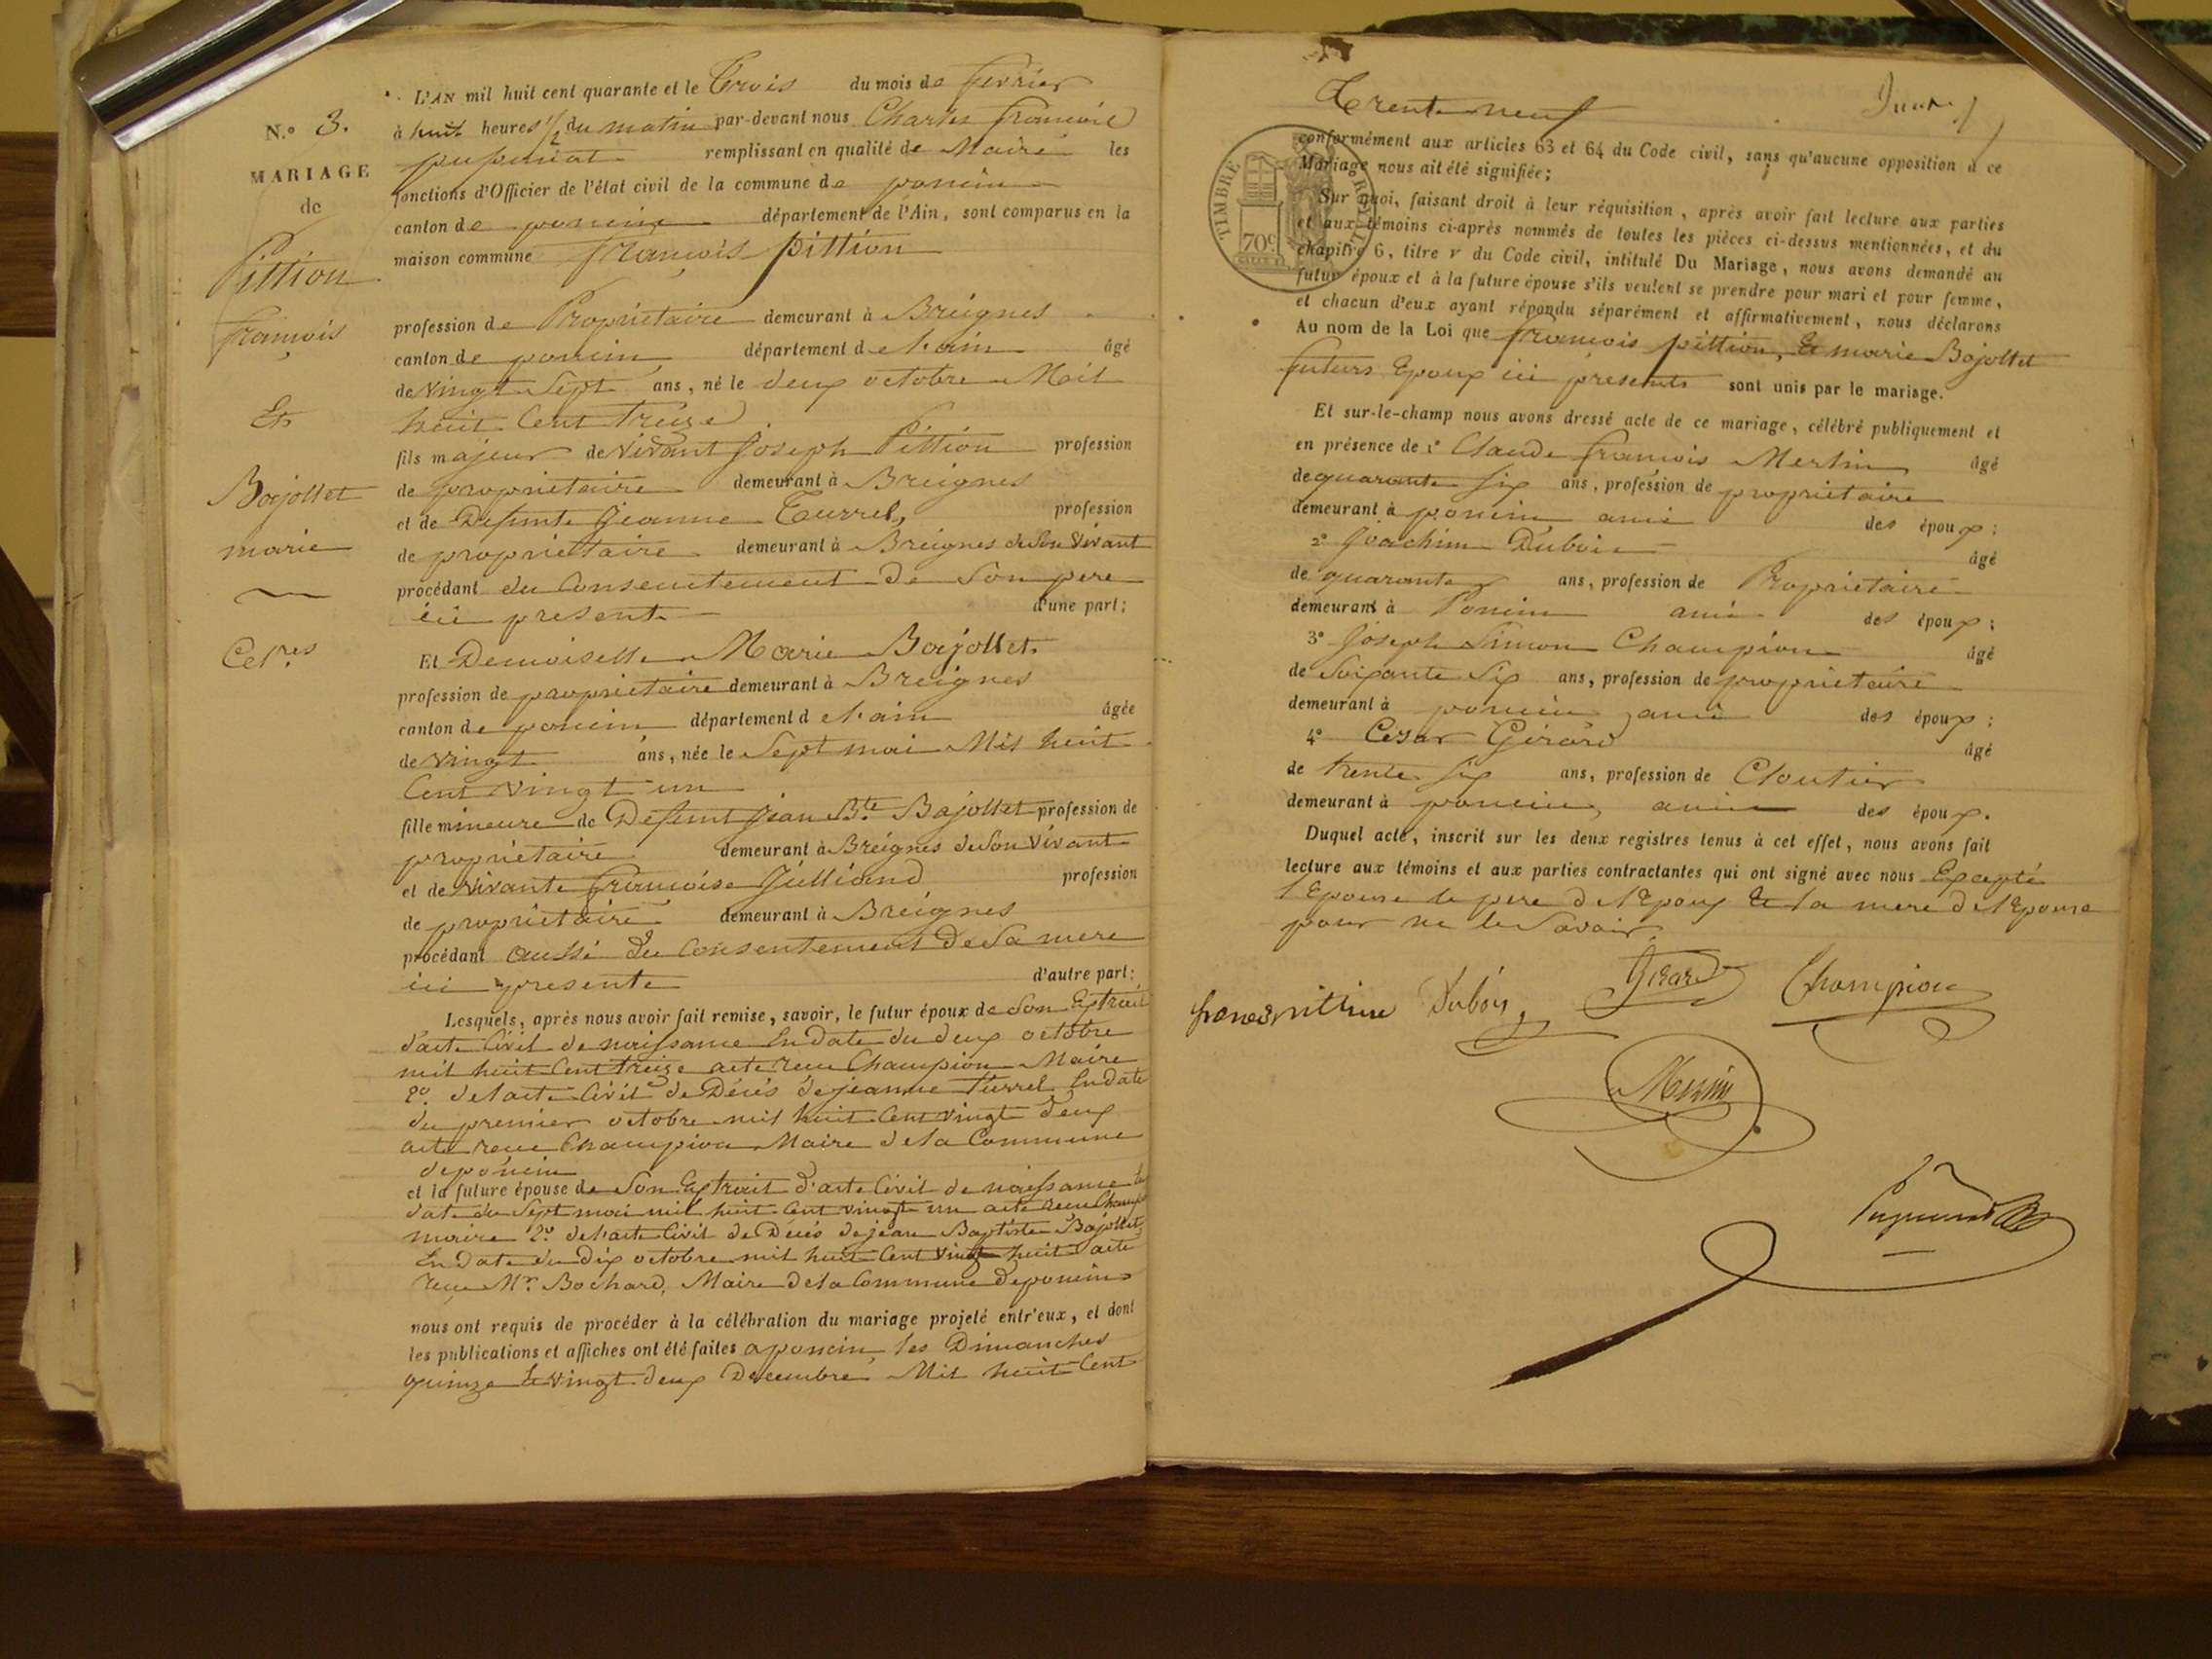 L'AN mil huit cent quarante et le Trois du mois de fevrier
N.º 3. à huit heures 1/2 du matin par-devant nous Charles francois
remplissant en qualité de Maire les
MARIAGE
fonctions d'Officier de l'état civil de la commune de poncin
de
canton de poncin département de l'Ain, sont comparus en la
maison commune françois pittion
Pittion
françois
profession de Propriétaire demeurant à Breignes
canton de poncin département de l'ain âgé
de vingt Sept ans, né le deux octobre Mil
Et
huit Cent treize
fils majeur de vivant Joseph Pittion profession
Bajollet
de propriétaire demeurant à Breignes
et de Defunte Jeanne Turrel, profession
marie
de propriétaire demeurant à Breignes de Son vivant
procédant du Consentement de Son pere
ici present d'une part;
Cel.res
Et Demoiselle Marie Bajollet
profession de propriétaire demeurant à Breignes
canton de poncin département de l'ain âgée
de vingt ans, née le Sept mai Mil huit
Cent vingt un
fille mineure de Defunt Jean B.te Bajollet profession de
propriétaire demeurant à Breignes de Son vivant
et de vivante françoise Julliand profession
de propriétaire demeurant à Breignes
procédant aussi du Consentement de Sa mere
ici presente d'autre part;
Lesquels, après nous avoir fait remise, savoir, le futur époux de Son Extrait
d'acte Civil de naissance En date du deux octobre
mil huit Cent treize acte recu Champion Maire
2º de l'acte Civil de Décés de jeanne Turrel En date
du premier octobre mil huit Cent vingt deux
acte recu Champion Maire de la Commune
de poncin
et la future épouse de Son Extrait d'acte Civil de naissance En
date du Sept mai mil huit Cent vingt un acte recu Champion
maire 2º de l'acte Civil de Décés de jean Baptiste Bajollet
En date du Dix octobre mil huit Cent vingt huit acte
recu Mr. Bochard, Maire de la Commune de poncin
nous ont requis de procéder à la célébration du mariage projeté entr'eux, et dont
les publications et affiches ont été faites a poncin les Dimanches
quinze Et vingt deux Decembre Mil huit Cent
Trente neuf
conformément aux articles 63 et 64 du Code civil, sans qu'aucune opposition à ce
Mariage nous ait été signifiée;
TIMBRE ROYAL
70c
Sur quoi, faisant droit à leur réquisition, après avoir fait lecture aux parties
et aux témoins ci-après nommés de toutes les pièces ci-dessus mentionnées, et du
chapitre 6, titre V du Code civil, intitulé Du Mariage, nous avons demandé au
futur époux et à la future épouse s'ils veulent se prendre pour mari et pour femme,
et chacun d'eux ayant répondu séparément et affirmativement, nous déclarons
Au nom de la Loi que francois pittion, Et marie Bajollet
futurs Epoux ici presents sont unis par le mariage.
Et sur-le-champ nous avons dressé acte de ce mariage, célébré publiquement et
en présence de 1º Claude francois Merlin âgé
de quarante six ans, profession de propriétaire
demeurant à poncin ami des époux;
2º Joachim Dubois âgé
de quarante ans, profession de Propriétaire
demeurant à Poncin ami des époux;
3º Joseph Simon Champion âgé
de Soixante Six ans, profession de propriétaire
demeurant à poncin, ami des époux;
4º Cesar Girard âgé
de trente six ans, profession de Cloutier
demeurant à poncin, ami des époux.
Duquel acte, inscrit sur les deux registres tenus à cet effet, nous avons fait
lecture aux témoins et aux parties contractantes qui ont signé avec nous Excepté
l'Epouse le pere de l'Epoux Et la mere de l'Epouse
pour ne le Savoir.
francois pittion Dubois Girard Champion
Merlin